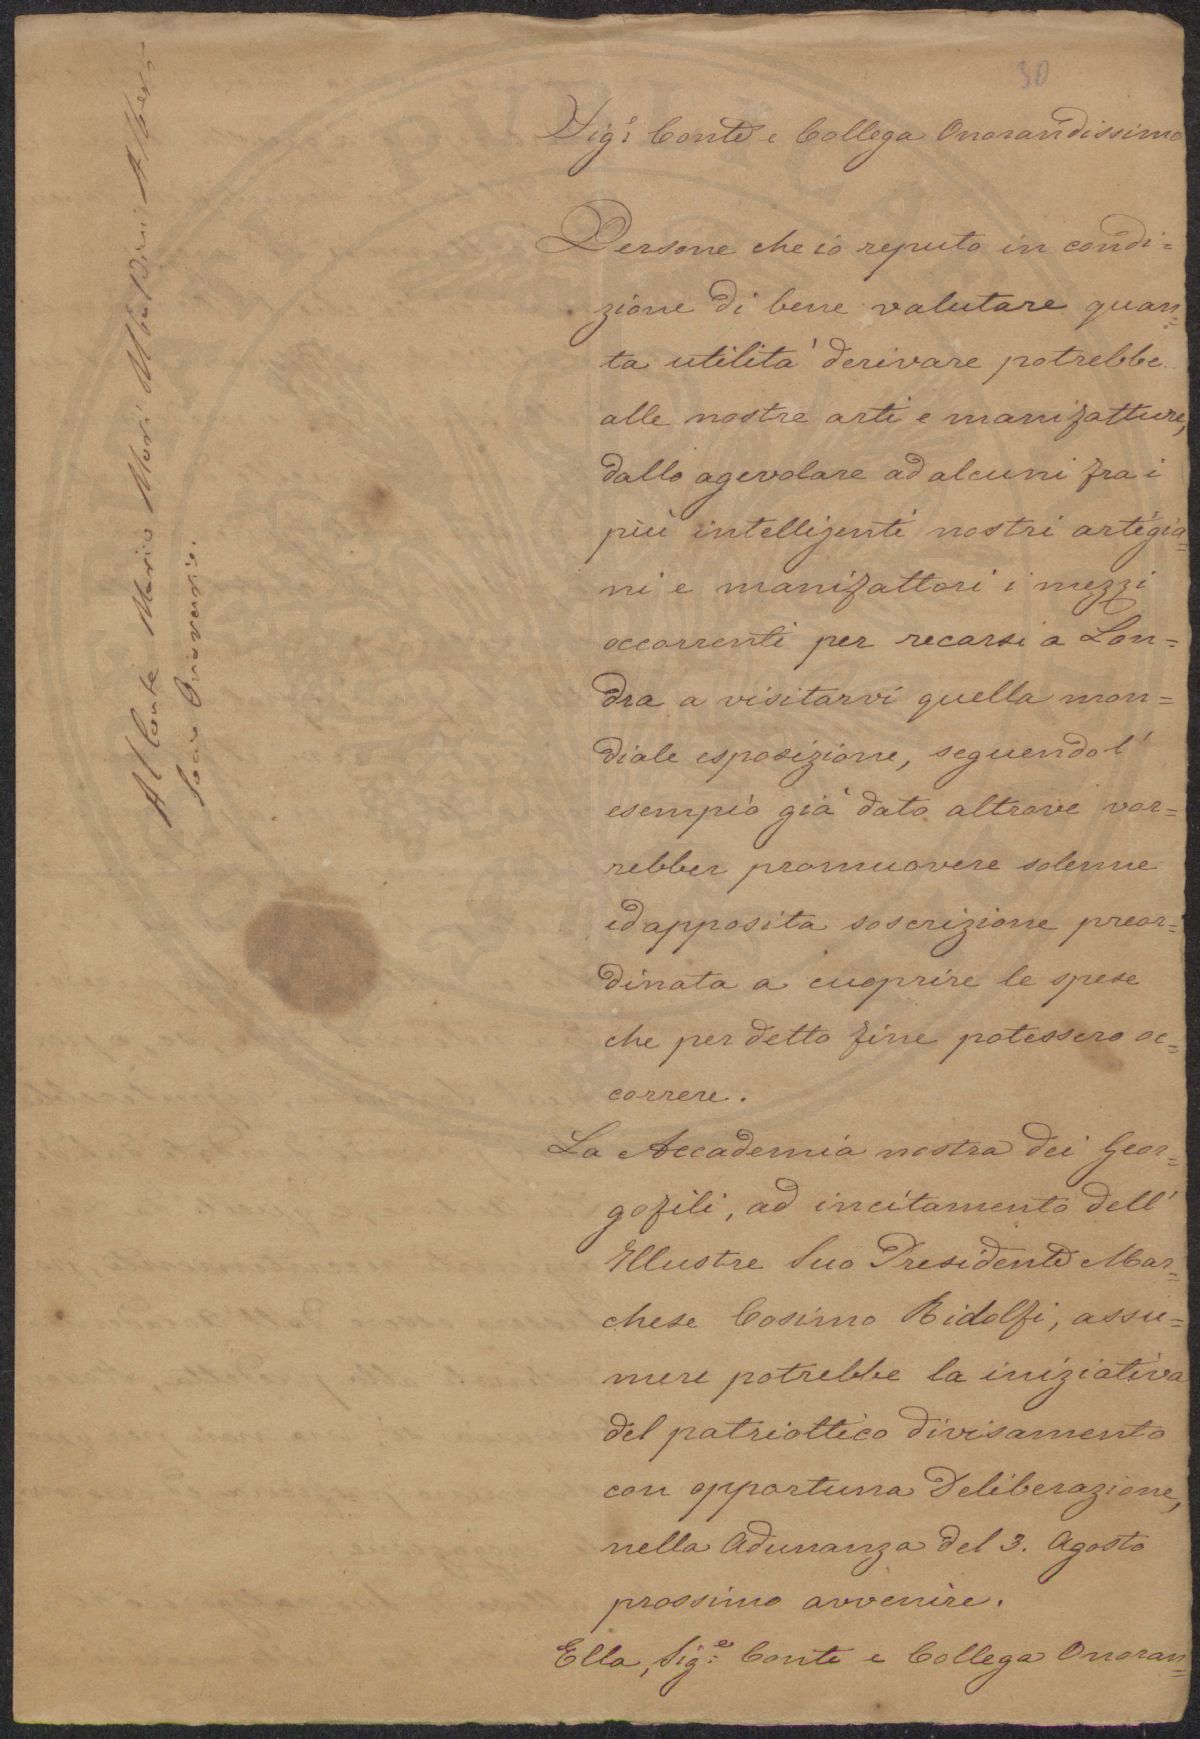 30
Sig.r Conte e Collega Onorandissimo
Persone che io reputo in condi=
zione di bene valutare quan=
ta utilità derivare potrebbe
alle nostre arti e manifatture,
dallo agevolare ad alcuni fra i
più intelligenti nostri artigia=
ni e manifattori i mezzi
occorrenti per recarsi a Lon=
dra a visitarvi quella mon=
diale esposizione, seguendo l'
esempio già dato altrove vor=
rebber promuovere solenne
ed apposita soscrizione preor=
dinata a cuoprire le spese
che per detto fine potessero oc=
correre.
La Accademia nostra dei Geor=
gofili, ad incitamento dell'
Illustre Suo Presidente Mar=
chese Cosimo Ridolfi, assu=
mere potrebbe la iniziativa
del patriottico divisamento
con opportuna Deliberazione,
nella Adunanza del 3. Agosto
prossimo avvenire.
Ella, Sig.e Conte e Collega Onoran=
Al Conte Mario Mori Ubaldini Alber.
Socio Onorario.